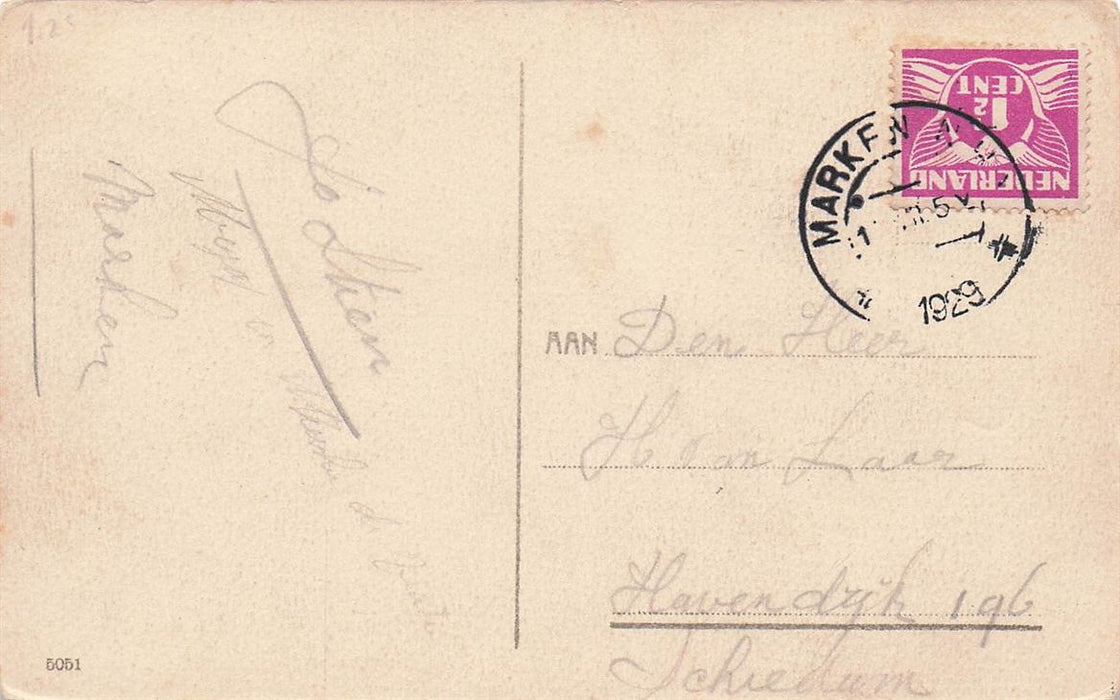 1.25
Marken
Jo Stien
NEDERLAND
1½
CENT
MARKEN
5
1929
AAN Den Heer
H van Laar
Havendijk 196
Schiedam
5051